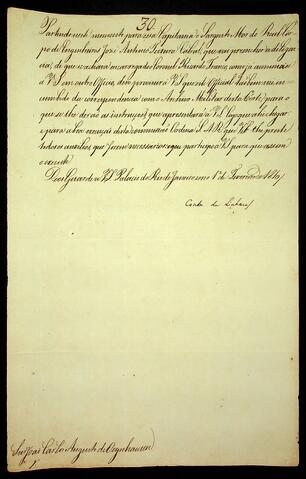 30
Partindo neste momento para essa Capitania o Sargento Mor do Real Cor
po de Engenheiros José Antonio Teixeira Cabral, que vai preencher a deligen
cia, de que se achava encarregado o Coronel Ricardo Franco, como já annunciei a
V S. em outro Officio, devo prevenir a V S. que este Official vai hum in
cumbido da correspondencia com o Archivo Militar desta Corte; para o
que se lhe derão as instrucções que apresentará a V S. logo que ahi chegar
e para a boa execução desta commissão Ordena S. A. R. que V S. lhe preste
todos os auxilios que forem necessarios: o que participo a V S. para que assim
o execute.
Deos Guarde a V S. Palacio do Rio de Janeiro em 1º de Fevereiro de
Conde de Linhares
Snr. João Carlos Augusto de Oeynhausen